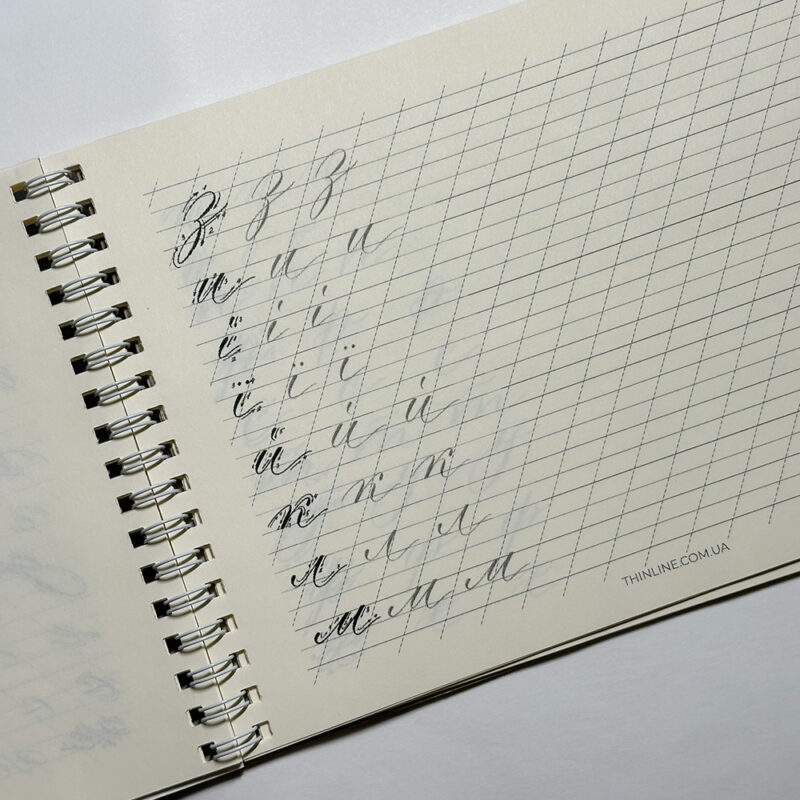 з з з
и и и
і і і
ї ї ї
й й й
к к к
л л л
м м м
THINLINE.COM.UA